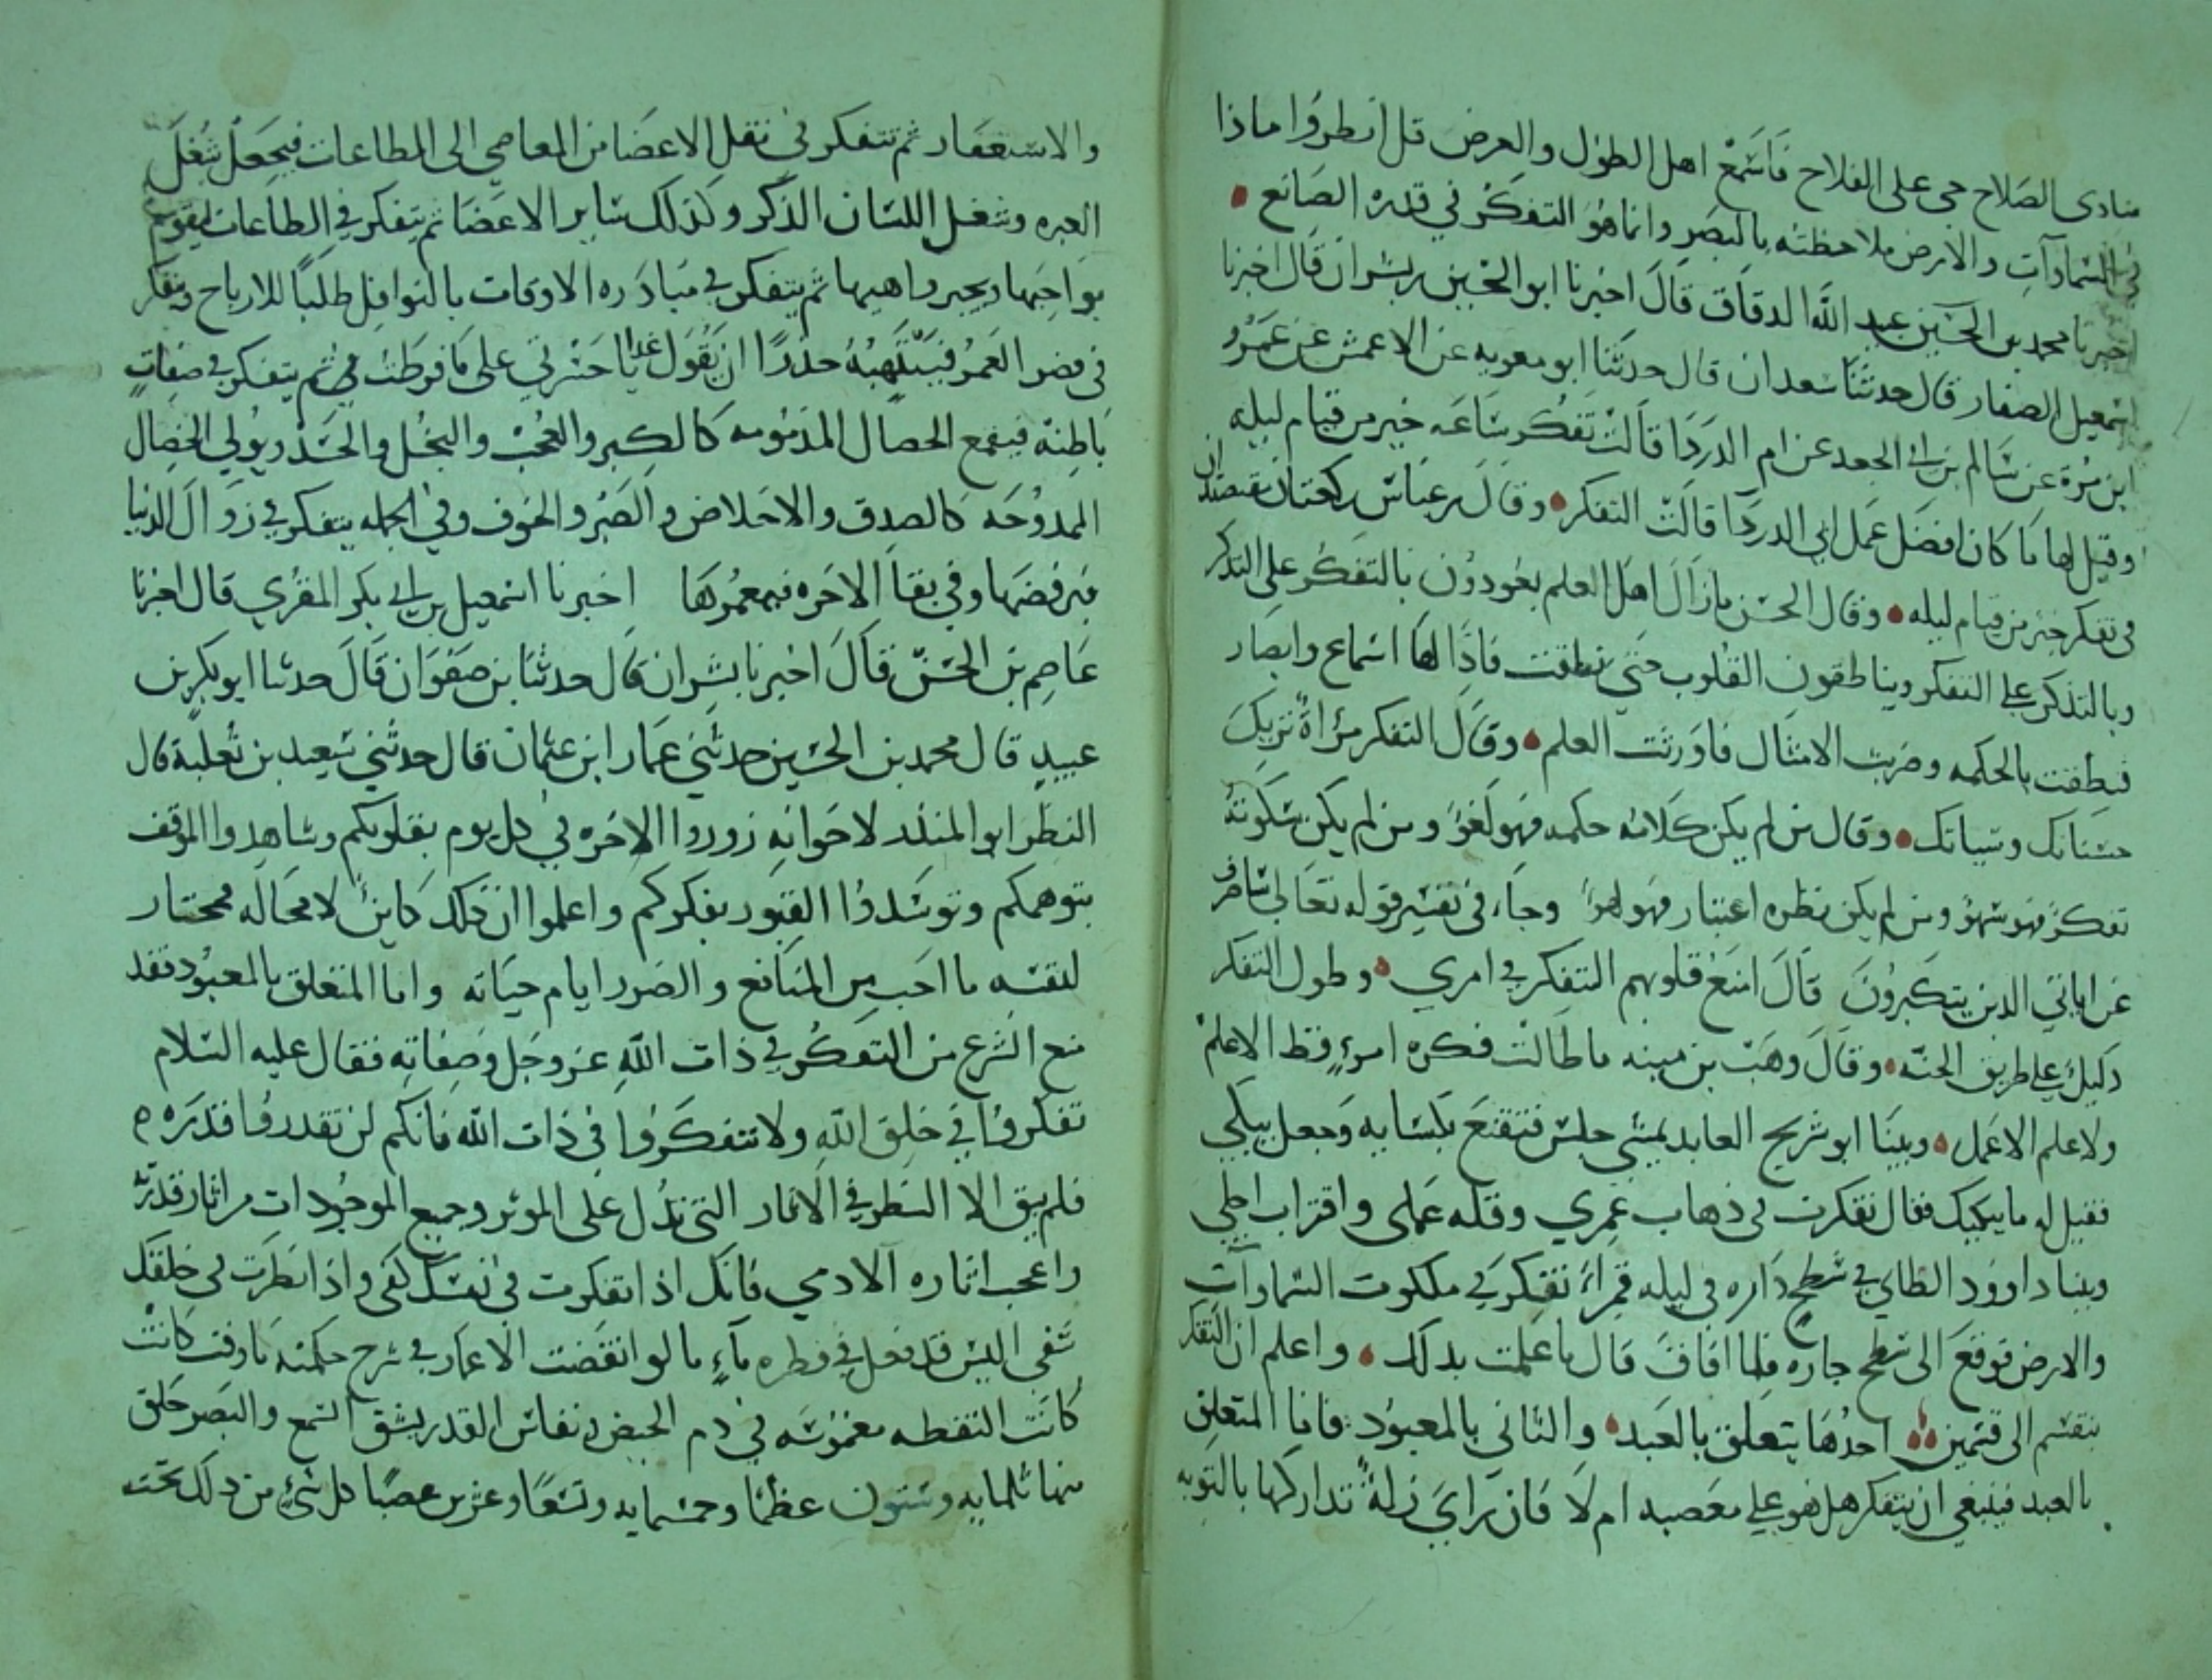 منادى الصلاح حي على الفلاح فاسمع اهل الطول والعرض قل انظروا ماذا
في السماوات والارض ملاحظته بالبصر وانما هو التفكر في قدرة الصانع
اخبرنا محمد بن الحسين بن عبد الله الدقاق قال اخبرنا ابو الحسين بن بشران قال اخبرنا
اسمعيل الصفار قال حدثنا سعدان قال حدثنا ابو معويه عن الاعمش عن عمرو
ابن مرة عن سالم بن ابي الجعد عن ام الدردا قالت تفكر ساعه خير من قيام ليله
وقيل لها ما كان افضل عمل ابي الدردا قالت التفكر وقال بن عباس ركعتان مقتصدتان
في تفكر خير من قيام ليله وقال الحسن ما زال اهل العلم يعودون بالتفكر على التذكر
وبالتذكر على التفكر ويناطقون القلوب حتى نطقت فاذا لها اسماع وابصار
فنطقت بالحكمه وضربت الامثال فاورثت العلم وقال التفكر مراة تريك
حسناتك وسياتك وقال من لم يكن كلامه حكمه فهو لغو ومن لم يكن سكوته
تفكر فهو سهو ومن لم يكن نظره اعتبار فهو لهو وجاء في تفسير قوله تعالى ساصرف
عن اياتي الذين يتكبرون قال امنع قلوبهم التفكر في امري وطول التفكر
دليل على طريق الجنه وقال وهب بن منبه ما طالت فكره امرء قط الا علم
ولا علم الا عمل وبينا ابو شريح العابد يمشي جلس فتقنع بكسايه وجعل يبكي
فقيل له ما يبكيك فقال تفكرت في ذهاب عمري وقله عملى واقتراب اجلي
وبينا داوود الطاي في سطح داره في ليله قمراء تفكر في ملكوت السماوات
والارض فوقع الى سطح جاره فلما افاق قال ما علمت بذلك واعلم ان التفكر
ينقسم الى قسمين احدهما يتعلق بالعبد والثاني بالمعبود فاما المتعلق
بالعبد فينبغي ان يتفكر هل هو على معصيه ام لا فان راي زلة تداركها بالتوبه
والاستغفار ثم تتفكر في نقل الاعضا من المعاصي الى الطاعات فيجعل شغل
العبره وشغل اللسان الذكر وكذلك ساير الاعضا ثم يتفكر في الطاعات ليقوم
بواجبها ويجبر واهيها ثم يتفكر في مبادره الاوقات بالنوافل طلبا للارباح ويتفكر
في قصر العمر فينتبه حذرا ان يقول غدا يا حسرتي على ما فرطت في ثم يتفكر في صفات
باطنه فيقمع الخصال المذمومه كالكبر والعجب والبخل والحسد ويولي الخصال
الممدوحه كالصدق والاخلاص والصبر والخوف وفي الجمله يتفكر في زوال الدنيا
فيرفضها وفي بقا الاخره فيعمرها اخبرنا اسمعيل بن ابي بكر المقري قال اخبرنا
عاصم بن الحسن قال اخبرنا بشران قال حدثنا بن صفوان قال حدثنا ابو بكر بن
عبيد قال محمد بن الحسين حدثني عمار ابن عثمان قال حدثني سعيد بن ثعلبة قال
النظر ابو المنذر لاخوانه زوروا الاخره في كل يوم بقلوبكم وشاهدوا الموقف
بتوهمكم وتوسدوا القبور بفكركم واعلموا ان ذلك كاين لا محاله فمختار
لنفسه ما احب من المنافع والضرر ايام حياته واما المتعلق بالمعبود فقد
منع الشرع من التفكر في ذات الله عز وجل وصفاته فقال عليه السلام
تفكروا في خلق الله ولا تتفكروا في ذات الله فانكم لن تقدروا قدره ه
فلم يبق الا النظر في الاثار التي تدل على الموثر وجميع الموجودات من اثار قدرته
واعجب اثاره الادمي فانك اذا تفكرت في نفسك كفى واذا نظرت في خلقك
شفى اليس قد فعل في قطره ماء ما لو انقضت الاعمار في شرح حكمته ما وفت كانت
كانت النقطه مغموسه في دم الحيض ونقاش القدر يشق السمع والبصر خلق
منها ثلمايه وستون عظما وخمسمايه وتسعا وعشرين عصبا كل شيء من ذلك تحت